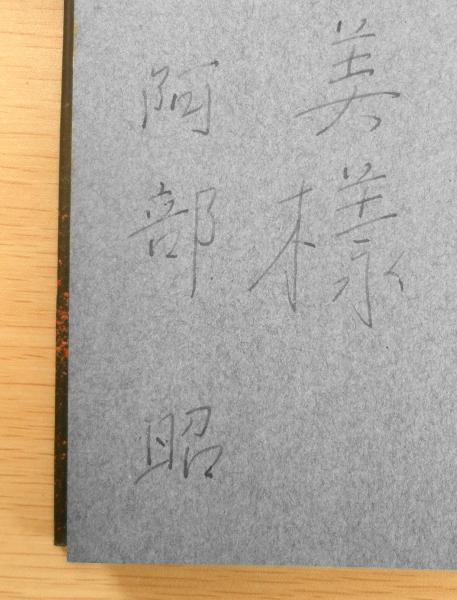 美様
阿部 昭